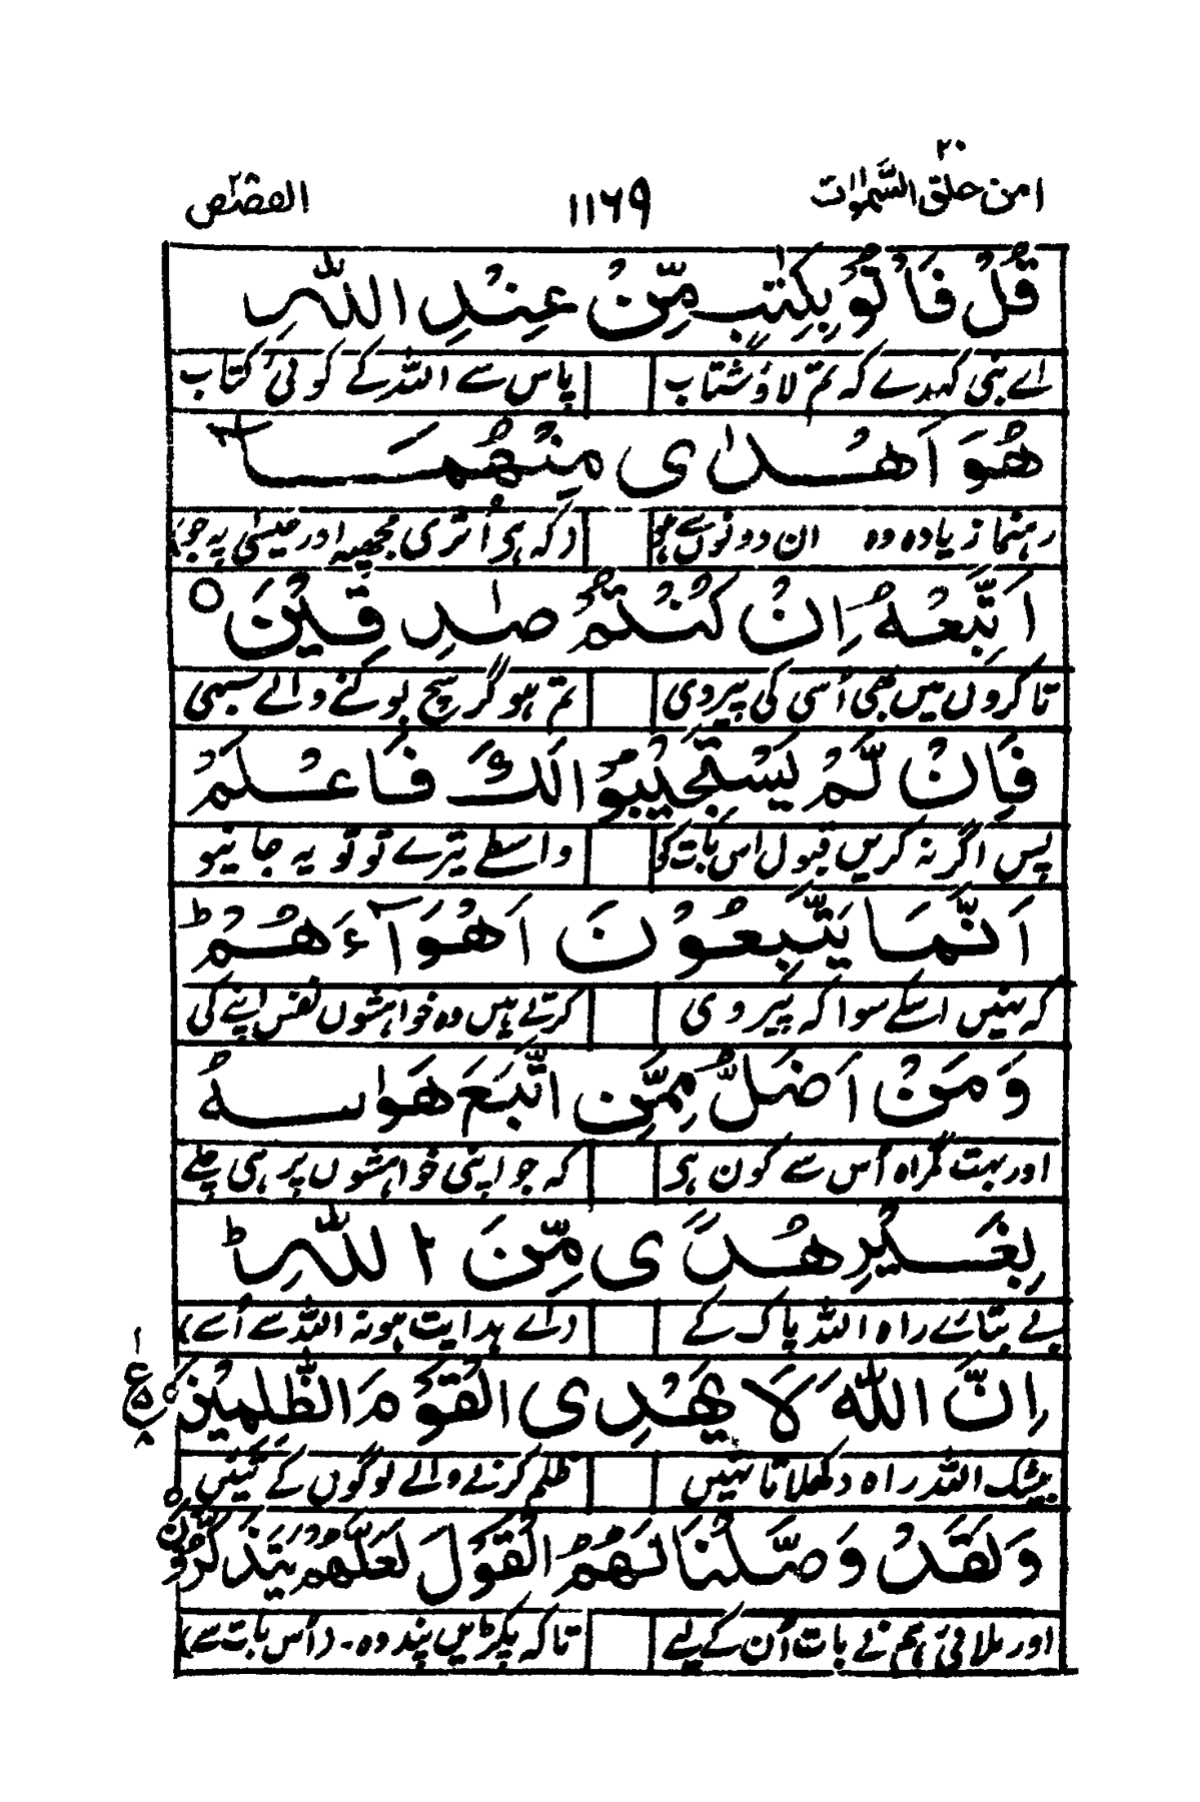 امن خلق السّمٰوٰت ۲۰ ۱۱۶۹ القصص ۲۸
قُلْ فَاْتُوْ بِكِتٰبٍ مِّنْ عِنْدِ اللّٰهِ
اے نبی کہدے کہ تم لاؤ شتاب پاس سے اللہ کے کوئی کتاب
هُوَ اَهْدٰى مِنْهُمَآ
رہنما زیادہ وہ ان دونوں سے ہو (کہ ہی اُتری مجھپہ اور عیسیٰ پہ جو)
اَتَّبِعْهُ اِنْ كُنْتُمْ صٰدِقِيْنَ ○
تا کروں میں بھی اُسی کی پیروی تم ہو گر سچ بولنے والے سبھی
فَاِنْ لَّمْ يَسْتَجِيْبُوْا لَكَ فَاعْلَمْ
پس اگر نہ کریں قبول اس بات کو واسطے تیرے تو تو یہ جانیو
اَنَّمَا يَتَّبِعُوْنَ اَهْوَآءَهُمْ ؕ
کہ نہیں اسکے سوا کہ پیروی کرتے ہیں وہ خواہشوں نفس اپنے کی
وَمَنْ اَضَلُّ مِمَّنِ اتَّبَعَ هَوٰىهُ
اور بہت گمراہ اُس سے کون ہی کہ جو اپنی خواہشوں پر ہی چلے
بِغَيْرِ هُدًى مِّنَ اللّٰهِ ؕ
بے بتائے راہ اللہ پاک کے (اے ہدایت ہو نہ اللہ سے اُسے)
اِنَّ اللّٰهَ لَا يَهْدِى الْقَوْمَ الظّٰلِمِيْنَ ○ ع
بیشک اللہ راہ دکھلاتا نہیں ظلم کرنے والے لوگوں کے تئیں
وَلَقَدْ وَصَّلْنَا لَهُمُ الْقَوْلَ لَعَلَّهُمْ يَتَذَكَّرُوْنَ ○
اور ملائی ہم نے بات اُن کے لیے تا کہ پکڑیں پند وہ۔ (اُس بات سے)